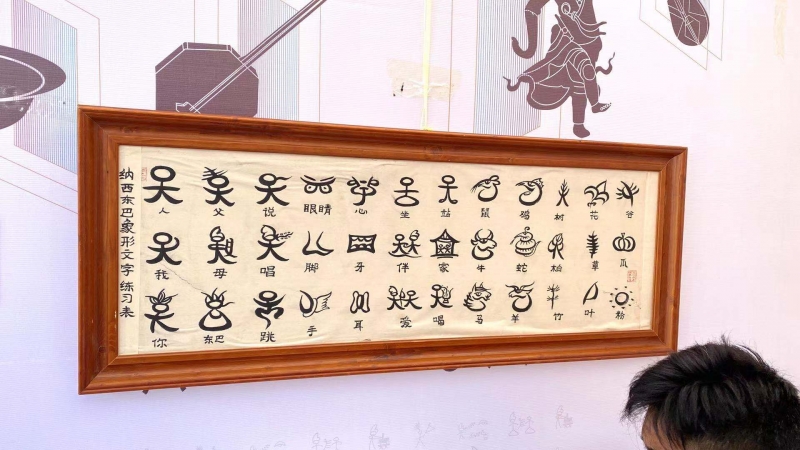 纳西东巴象形文字 练习表
人 父 说 眼睛 心 坐 站 鼠 鸡 树 花 谷
我 母 唱 脚 牙 伴 家 牛 蛇 松 草 瓜
你 东巴 跳 手 耳 爱 喝 马 羊 竹 叶